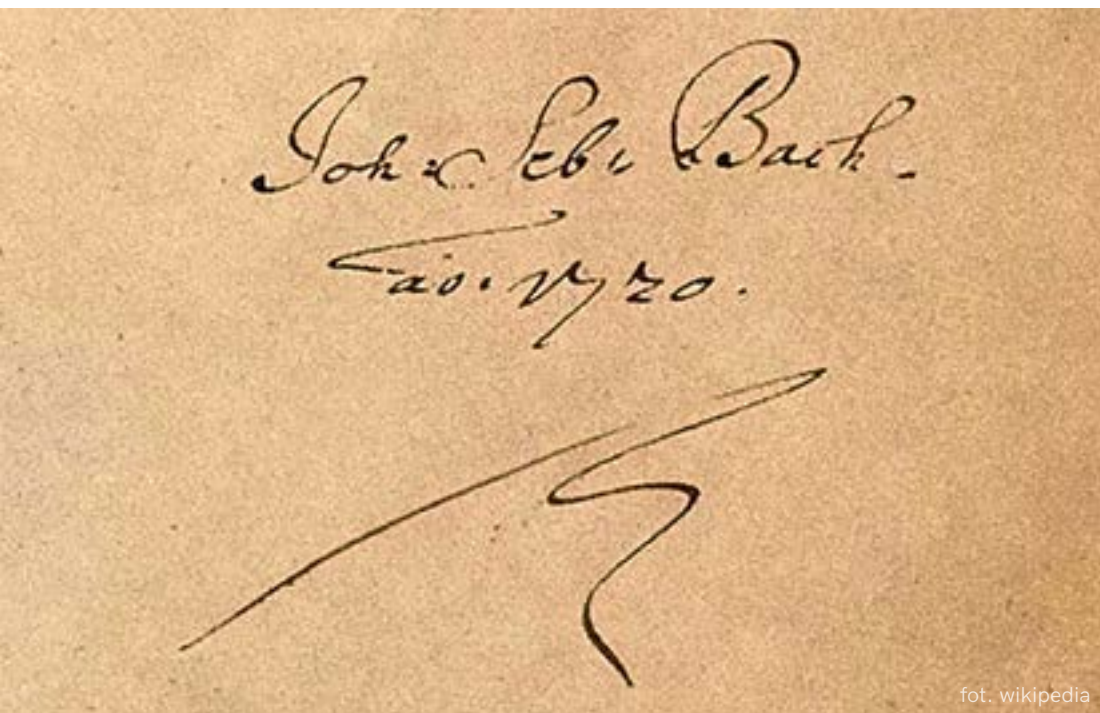 Joh: Seb: Bach.
ao. 1720.
fot. wikipedia